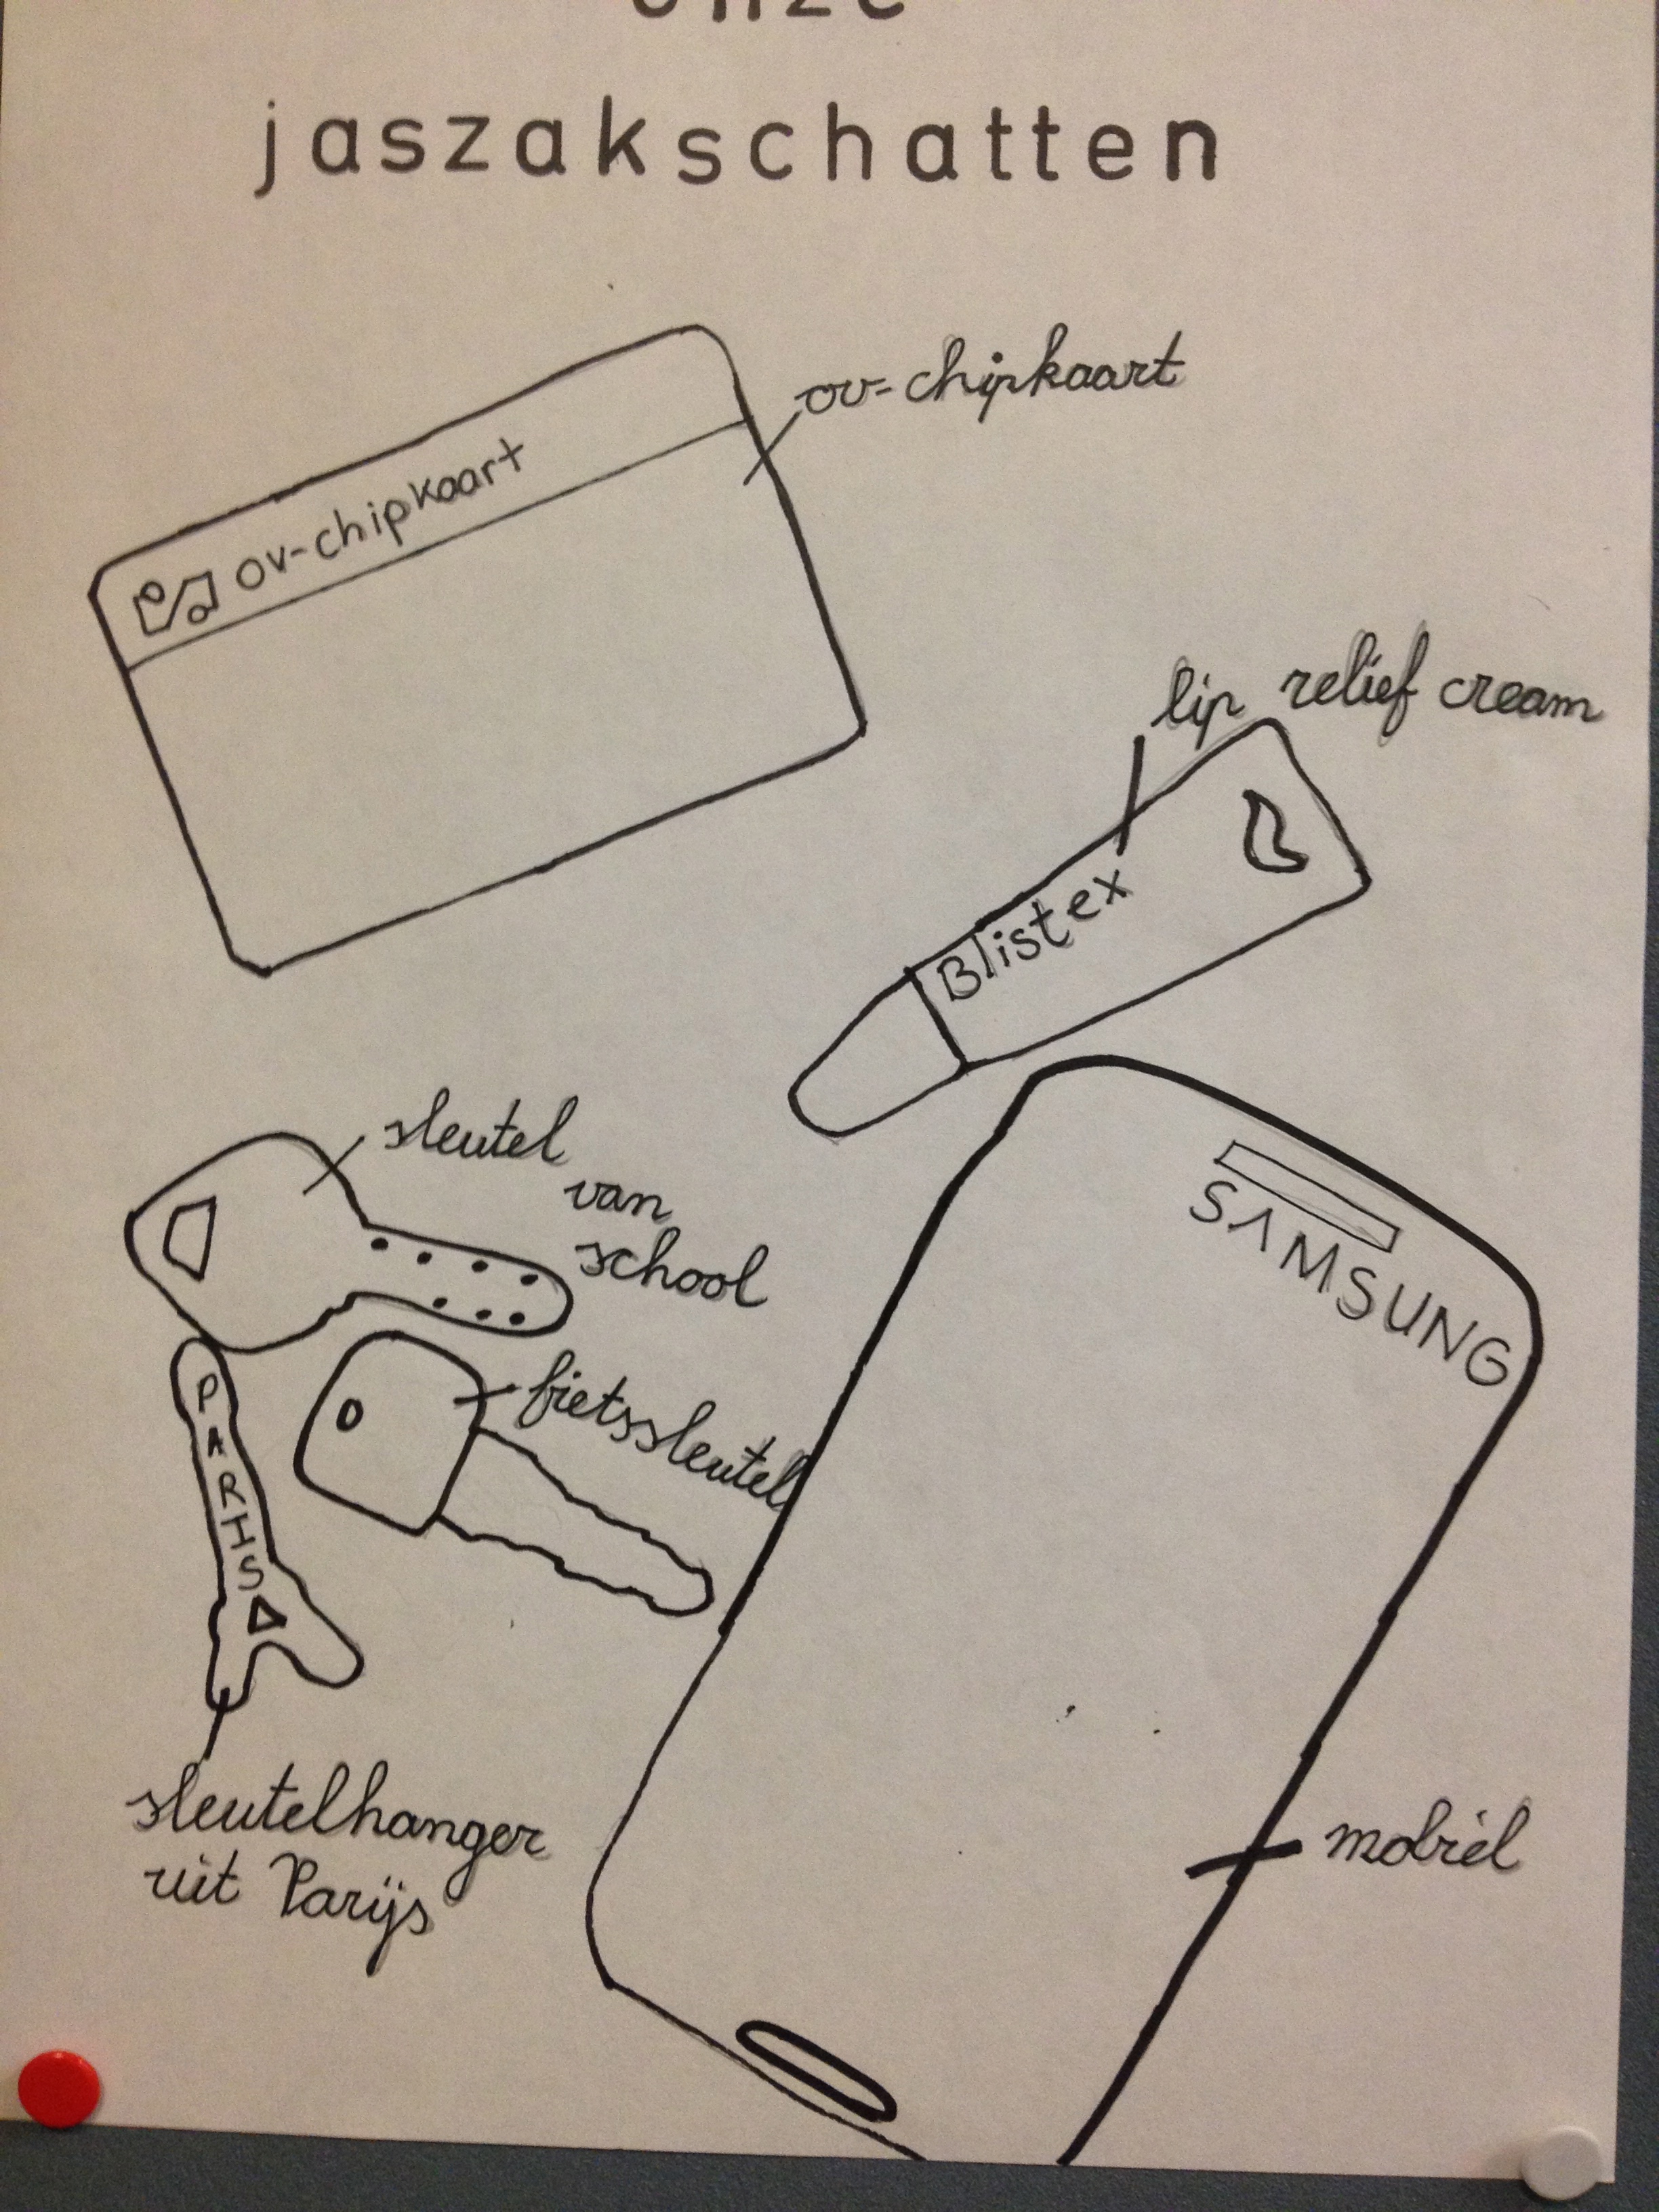 onze
jaszakschatten
ov-chipkaart
ov-chipkaart
lip relief cream
Blistex
sleutel
van
school
SAMSUNG
fietssleutel
PARHS
mobiel
sleutelhanger
uit Parijs